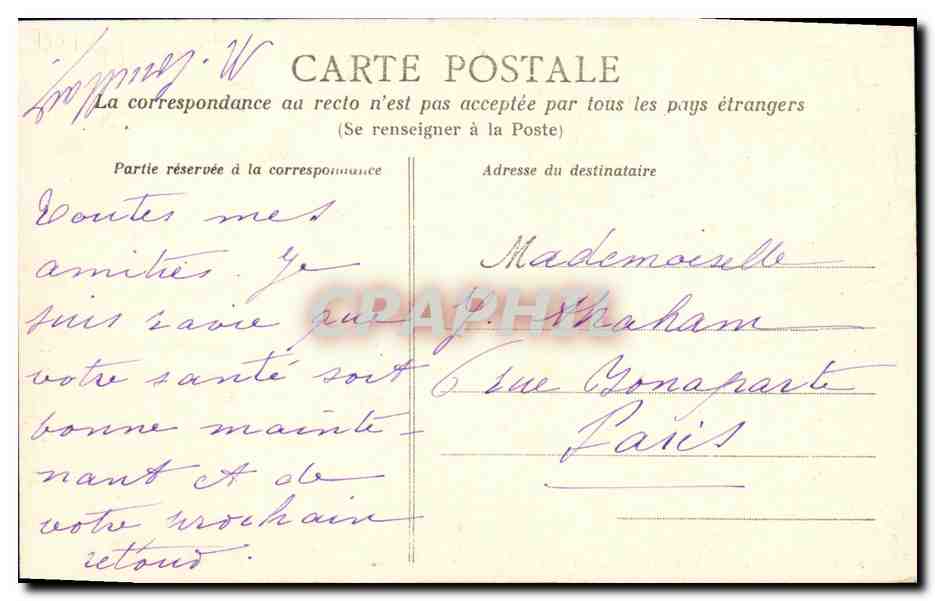 CARTE POSTALE
La correspondance au recto n'est pas acceptée par tous les pays étrangers
(Se renseigner à la Poste)
Partie réservée à la correspondance
Toutes mes
amitiés. Je
suis ravie que
votre santé soit
bonne mainte-
nant et de
votre prochain
retour.
Adresse du destinataire
Mademoiselle
Y. Abraham
6 rue Bonaparte
Paris
CPAPHIL